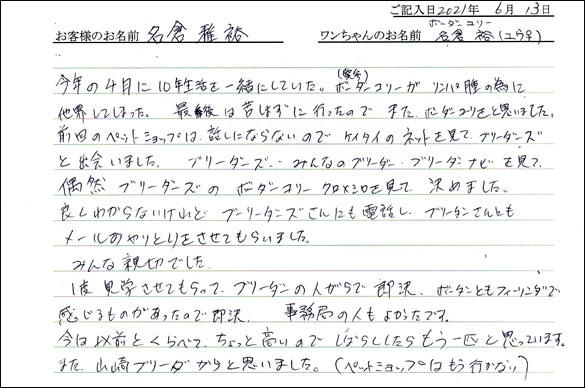 ご記入日2021年 6月 13日
お客様のお名前 名倉 雅裕
ワンちゃんのお名前 ボーダーコリー 名倉 裕(ユウ♀)
今年の4月に10年生活を一緒にしていた。(家族)ボーダーコリーが リンパ腫の為に
他界してしまった。 最後は苦しまずに行ったので また、ボーダーコリーをと思いました。
前回のペットショップは、話しにならないので ケイタイのネットを見て、ブリーダーズ
と出会いました。 ブリーダーズ・・みんなのブリーダー・ブリーダーナビを見て、
偶然 ブリーダーズの ボーダーコリー クロ×シロを見て 決めました。
良くわからないけれど ブーリーダーズさんにも電話し、ブリーダーさんとも
メールのやりとりをさせてもらいました。
みんな親切でした。
1度 見学させてもらって、ブリーダーの人がらで 即決、ボーダーともフィーリングで
感じるものがあったので即決、 事務局の人もよかったです。
今は以前とくらべて、ちょっと高いので しばらくしたらもう一匹と思っています。
また、山崎ブリーダーからと思いました。(ペットショップはもう行かない)